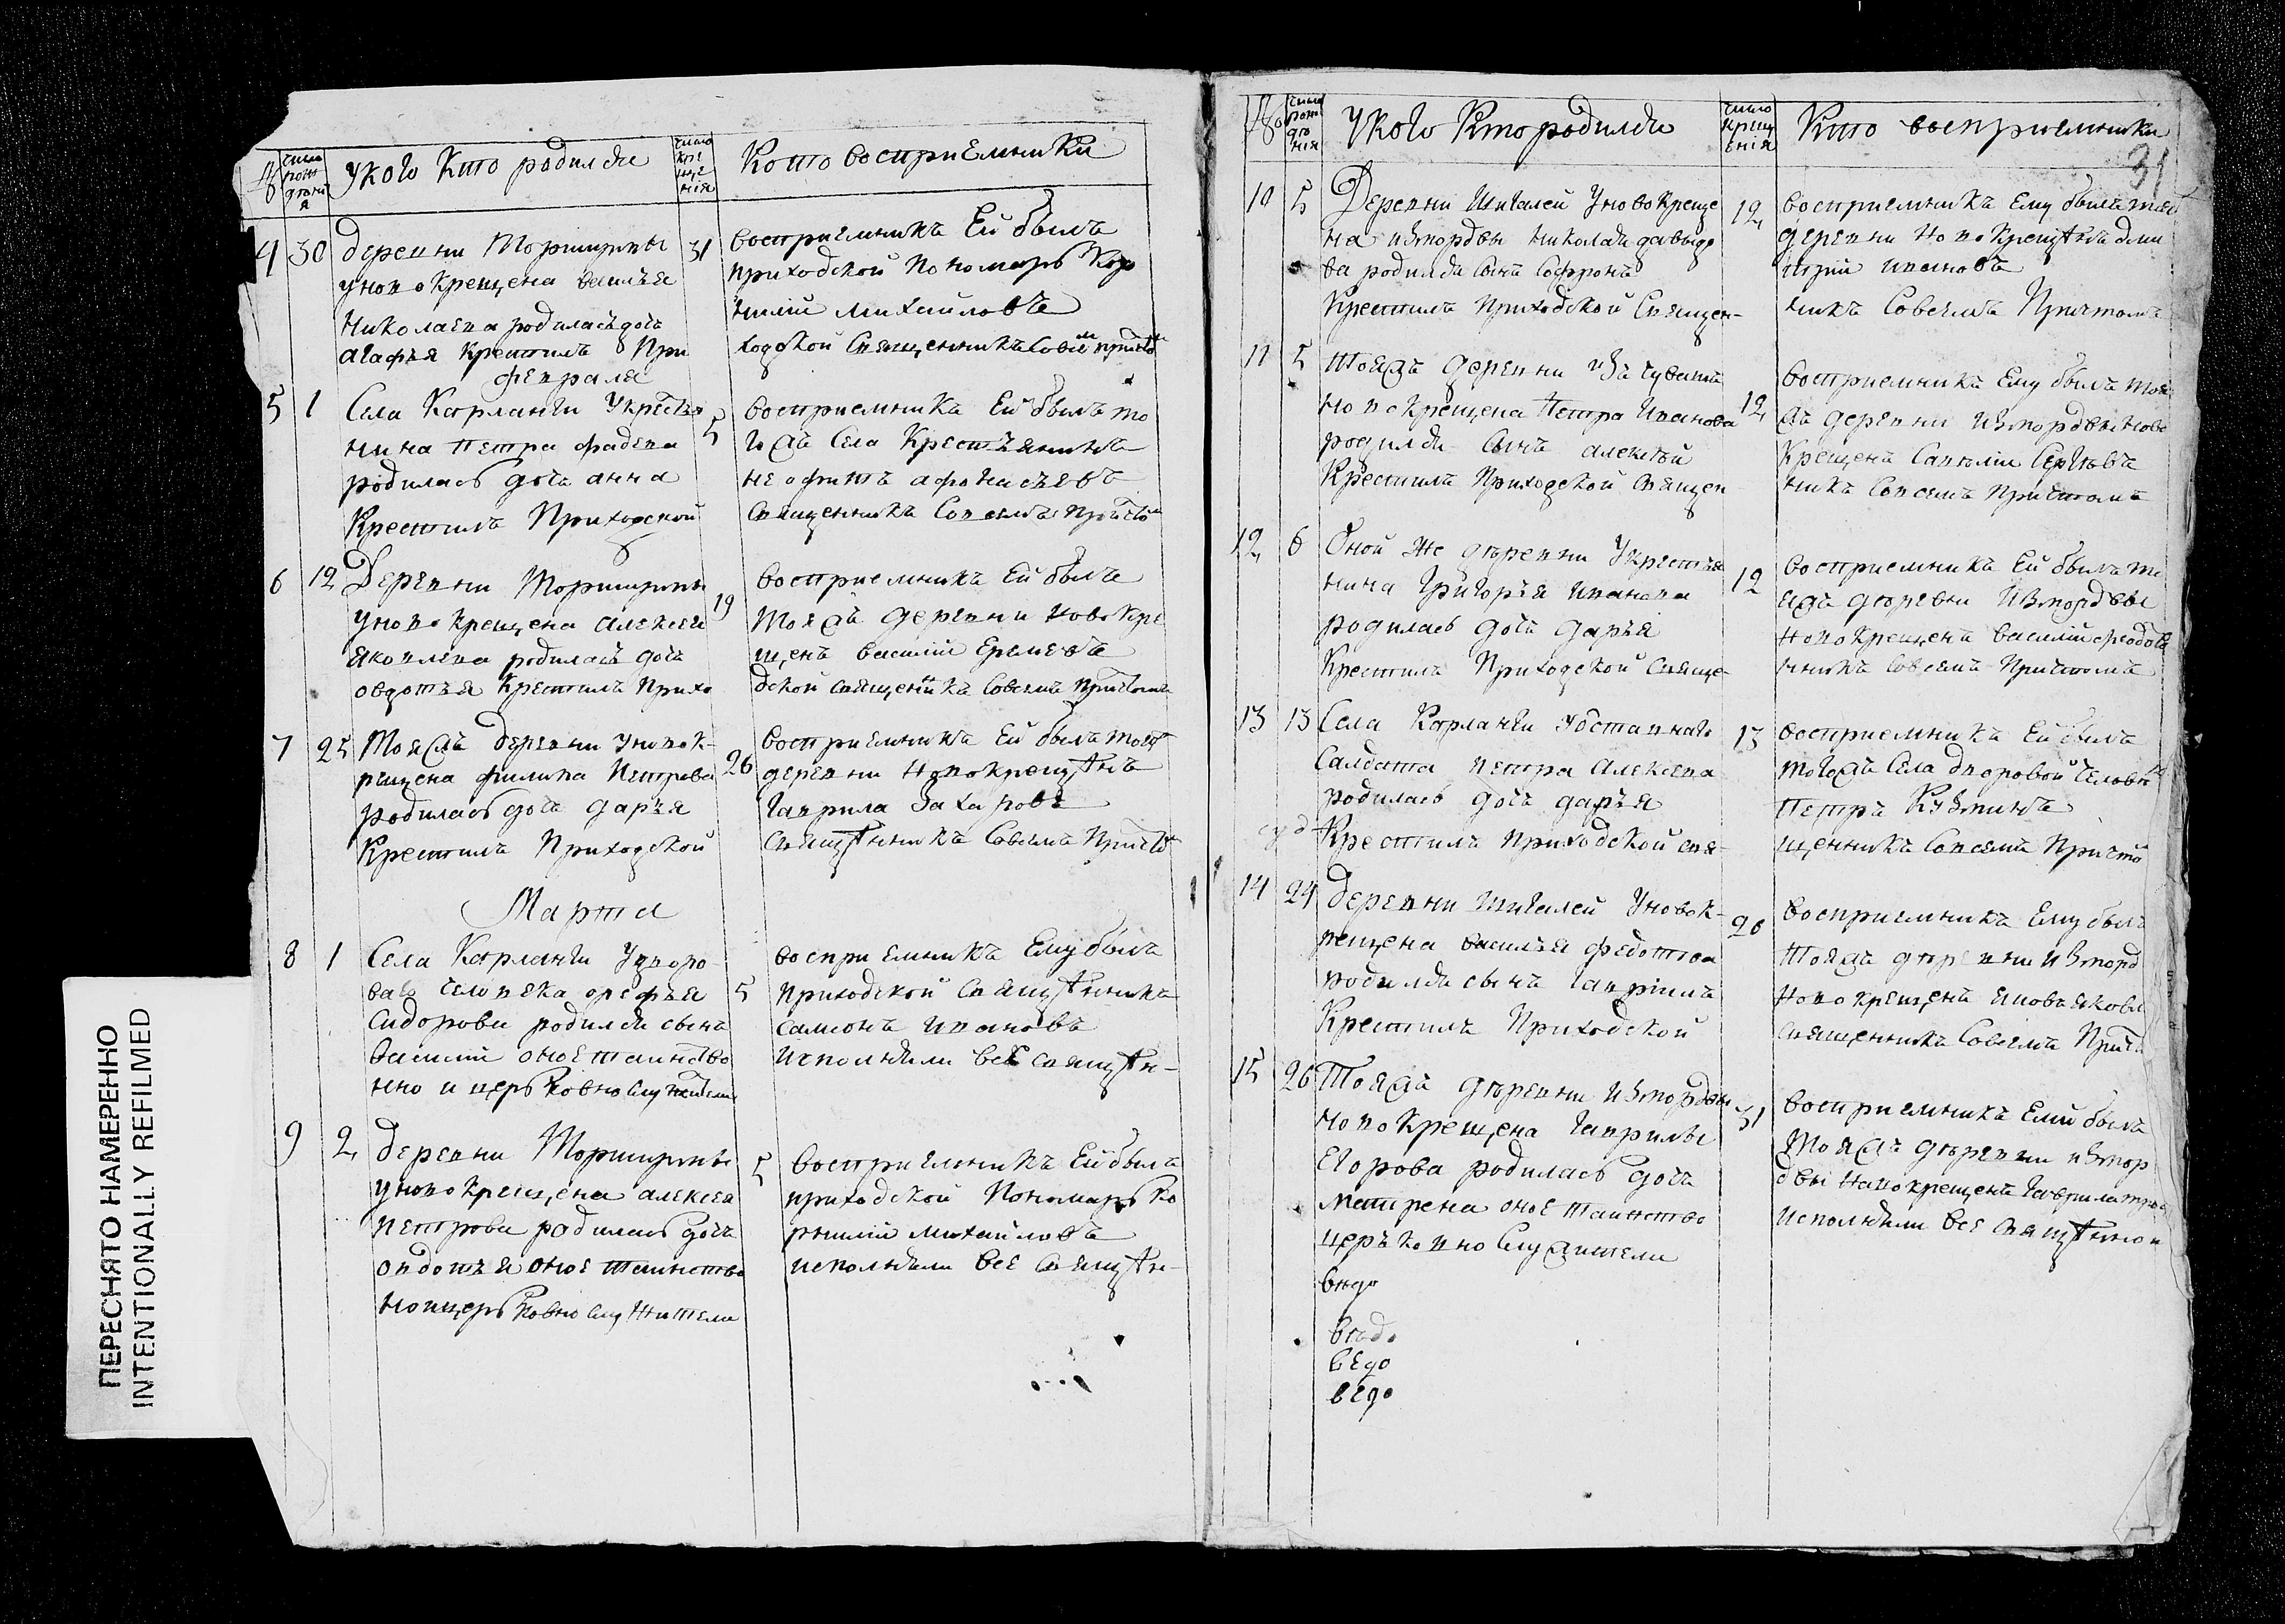 №
число рождения
У кого кто родился
число крещения
Кто восприемники
4 30 деревни Торшурмы 31
у новокрещена василья
Николаева родилась дочь
агафья Крестилъ При
восприемникъ Ей былъ
приходской Пономарь Кор
нилий михайловъ
ходской Священникъ Совсемъ притчомъ
февраля
5 1 Села Карланги Укрестья 5
нина Петра фадева
родилась дочь анна
Крестилъ Приходской
восприемникъ Ей былъ то
гожъ Села Крестьянинъ
неофитъ афонасьевъ
Священникъ Совсемъ Притчомъ
6 12 Деревни Торшурмы 19
Уновокрещена алексея
яковлева родилась дочь
овдотья Крестилъ Прихо
восприемникъ Ей былъ
тояжъ деревни новокре
щенъ василий Еремевъ
дской священникъ Совсемъ Притчомъ
7 25 Тояжъ деревни Уновок- 26
рещена филипа Петрова
родилась дочь дарья
Крестилъ Приходской
восприемникъ Ей былъ тояжъ
деревни Новокрещенъ
гаврила Захаровъ
священникъ Совсемъ Притчомъ
Марта
8 1 Села Карланги Удворо 5
ваго Человека орефья
Сидорова родился сынъ
василий оное таинство
нно и церьковнослужители
восприемникъ Ему былъ
приходской Священникъ
самсонъ ивановъ
исполняли все священ-
9 2 деревни Торшурмы 5
уновокрещена алексея
Петрова родилась дочь
овдотья оное таинство
но ицерьковнослужители
восприемникъ Ей былъ
приходской Пономарь Ко
рнилий михайловъ
исполняли все Священ-
31
№
число рождения
У кого Кто родился
число крещения
Кто восприемники
10 5 Деревни Шигалей Уновокреще 12
на измордвы николая давыдо
ва родился Сынъ Софронъ
Крестилъ Приходской Священ-
восприемникъ Ему былъ тояжъ
деревни Новокрещенъ дми
трий ивановъ
никъ Совсемъ Притчомъ
11 5 тояжъ деревни изъ чувашъ 12
новокрещена Петра Иванова
родился Сынъ алексей
Крестилъ Приходской Священ
восприемникъ Ему былъ тоя
жъ деревни измордвы Ново
Крещенъ Савелий Сергевъ
никъ Совсемъ Притчомъ
12 6 Оной же деревни Укрестья 12
нина Григорья иванова
родилась дочь дарья
Крестилъ Приходской Свяще-
восприемникъ Ей былъ то
яжъ деревни Измордвы
новокрещенъ василий федотовъ
нникъ совсемъ Притчомъ
13 13 Села Карланги Уоставнаго 13
Салдата Петра алексева
родилась дочь дарья
Крестилъ приходской свя-
восприемникъ Ей былъ
тогожъ Села дворовой Человекъ
Петръ Кузминъ
щенникъ Совсемъ Притчо
14 24 деревни Шигалей Уновок- 26
рещена василья федотова
родился сынъ гаврилъ
Крестилъ Приходской
восприемникъ Ему былъ
тояжъ деревни измордвы
новокрещенъ яковлевъ
священникъ Совсемъ Притч
15 26 Тояжъ деревни измордвы 31
новокрещена гаврилы
Егорова родилась дочь
матрена оное таинство
церьковно Служители
восприемникъ Емй былъ
Тояжъ деревни измор
двы новокрещенъ гаврила
исполняли все священно и
ведо
ведо
ведо
ведо
ПЕРЕСНЯТО НАМЕРЕННО
INTENTIONALLY REFILMED